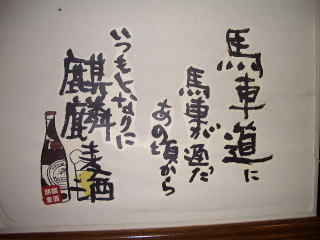 馬車道に
馬車が通だ
あの頃から
いつもとなりに
麒麟麦酒
麒麟
麦酒